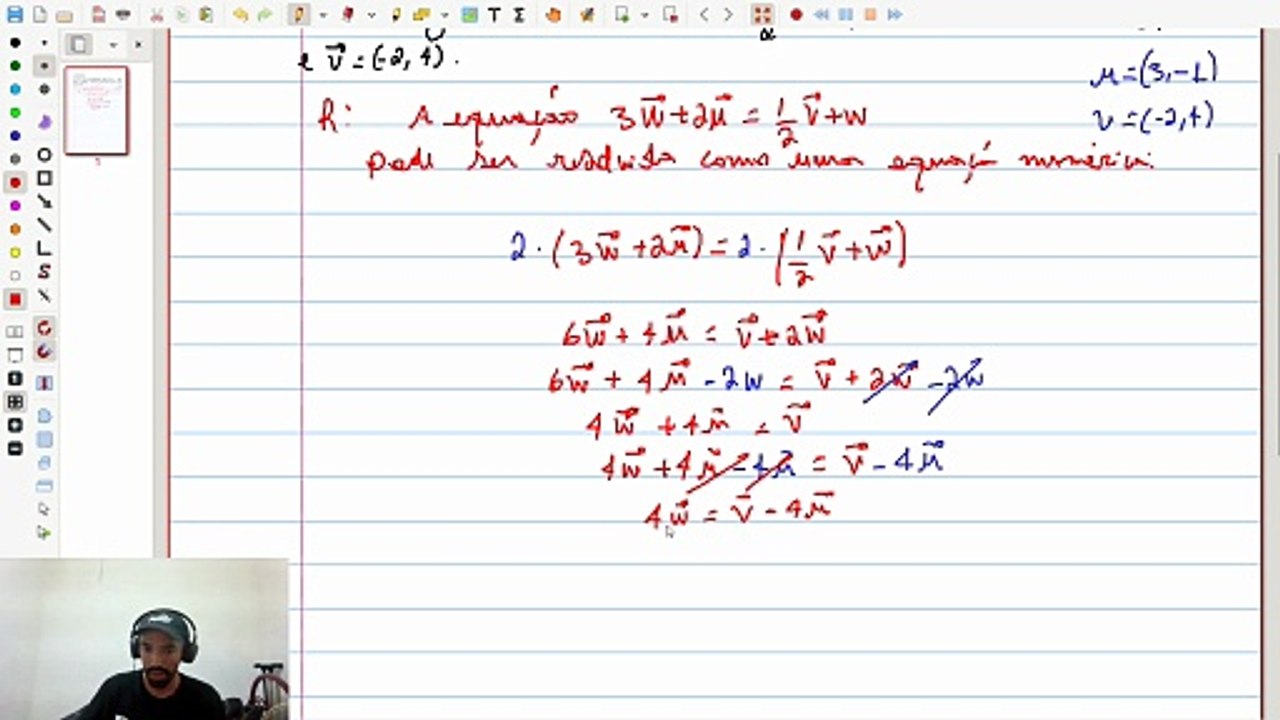 e v⃗ = (-2, 4).
u = (3, -1)
v = (-2, 4)
R: A equação 3w⃗ + 2u⃗ = 1/2 v⃗ + w
pode ser resolvida como uma equação numérica.
2 · (3w⃗ + 2u⃗) = 2 · (1/2 v⃗ + w⃗)
6w⃗ + 4u⃗ = v⃗ + 2w⃗
6w⃗ + 4u⃗ - 2w = v⃗ + 2w⃗ - 2w⃗
4w⃗ + 4u⃗ = v⃗
4w⃗ + 4u⃗ - 4u⃗ = v⃗ - 4u⃗
4w⃗ = v⃗ - 4u⃗